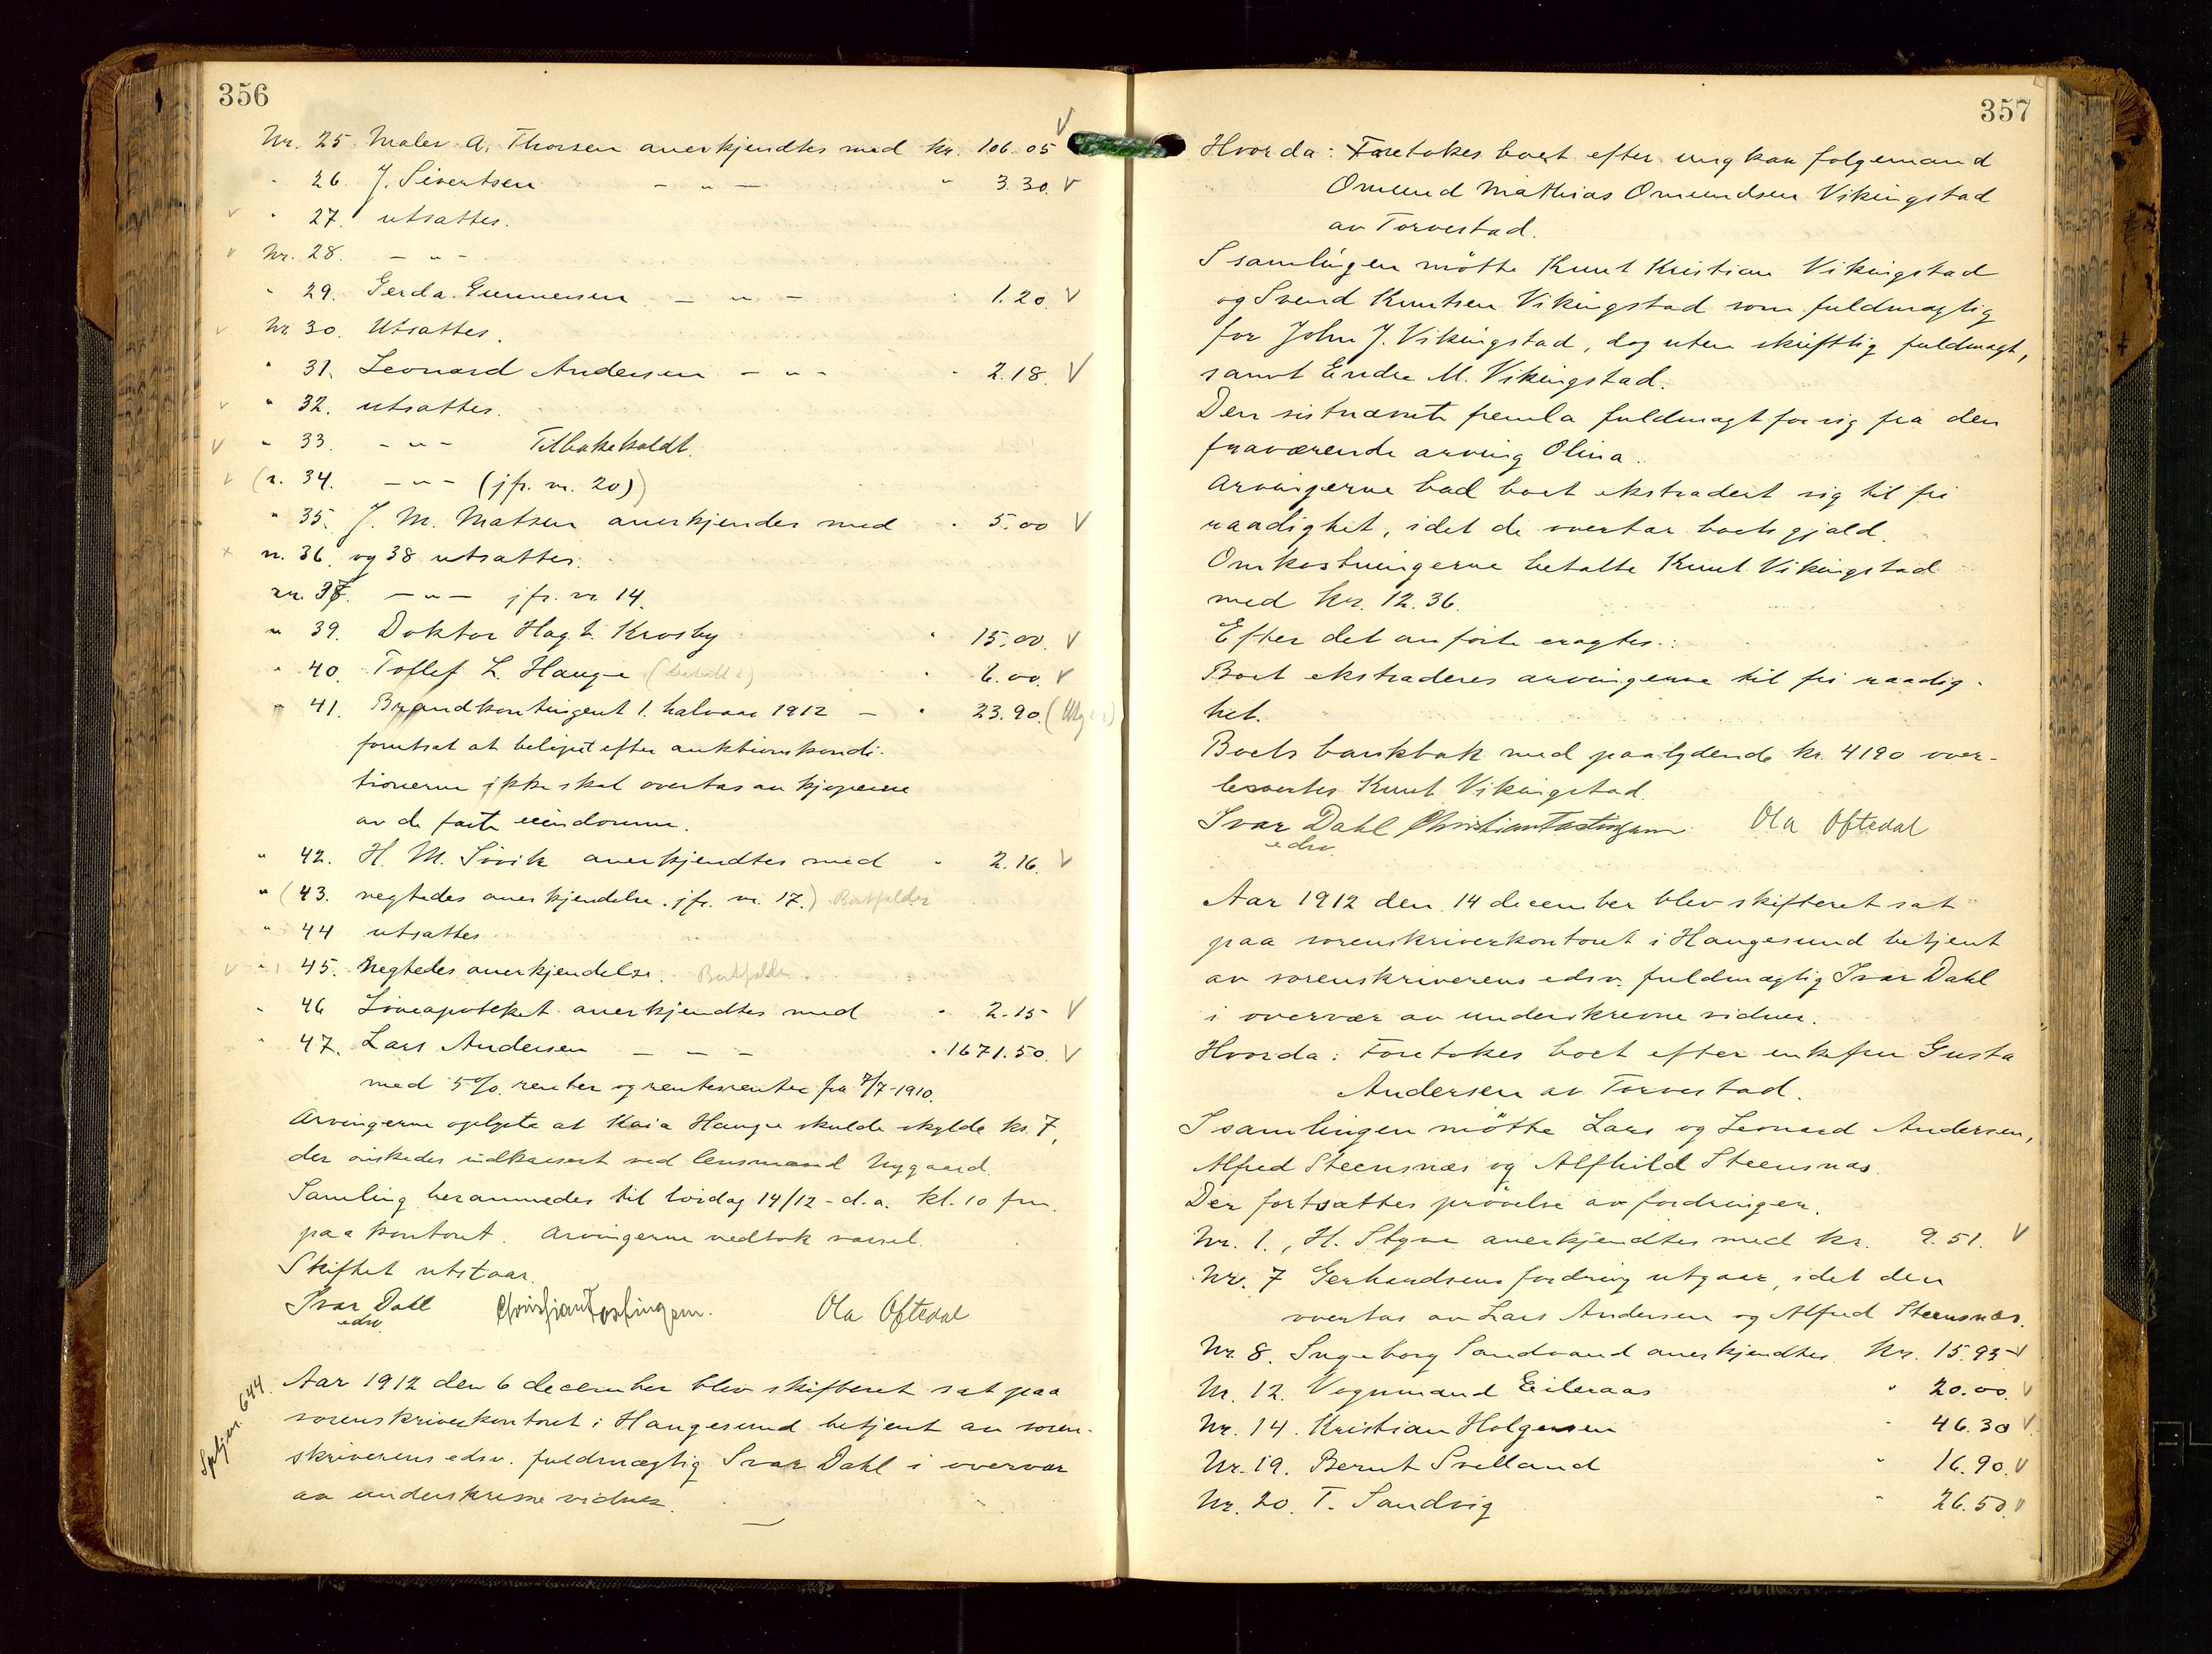 356
Nr. 25 Maler A. Thorsen anerkjendtes med kr. 106.05 V
" 26. J. Sivertsen - " - " 3.30. V
V " 27. utsattes.
V Nr. 28. - " -
" 29. Gerda Gunnersen - " - " 1.20. V
V Nr 30. Utsattes.
" 31. Leonard Andersen - " - " 2.18. V
V " 32. utsattes.
V " 33. - " - Tilbakekaldt.
V (n. 34. - " - (jfr. nr. 20))
" 35. J. M. Matsen anerkjendes med " 5.00 V
n. 36. og 38 utsattes.
nr. 37. - " - jfr. nr. 14.
" 39. Doktor Hag. t. Krosby " 15.00. V
" 40. Tollef L. Hauge (betalt) " 6.00. V
" 41. Brandkontingent 1. halvaar 1912 - " 23.90.
forutsat at beløpet efter auktionskondi-
tionerne ikke skal overtas av kjøperne
av de faste eiendomme.
" 42. H. M. Sövik anerkjendtes med " 2.16. V
" (43. negtedes anerkjendelse. jfr. nr. 17.) Bortfalder
" 44 utsattes.
V " 45. Negtedes anerkjendelse. Bortfalder
" 46 Löveapoteket anerkjendtes med " 2.15 V
" 47. Lars Andersen - - - " 1671.50. V
med 5% renter og rentesrenter fra 7/7-1910.
Arvingerne oplyste at Kaia Hauge skulde skylde kr. 7,
der önskedes indkassert ved lensmand Nygaard.
Samling berammedes til lördag 14/12 - d.a. kl. 10 fm.
paa kontoret. Arvingerne vedtok varsel.
Skiftet utstaar.
Ivar Dahl Christian Tastingsen. Ola Oftedal
edsv.
Spkjor. 644.
Aar 1912 den 6 december blev skifteret sat paa
sorenskriverkontoret i Haugesund betjent av soren-
skriverens edsv. fuldmægtig Ivar Dahl i overvær
av underskrevne vidner.
357
Hvorda: Foretokes boet efter ungkar følgemand
Omund Mathias Omundsen Vikingstad
av Torvestad.
I samlingen mötte Knut Kristian Vikingstad
og Svend Knutsen Vikingstad som fuldmægtig
for John J. Vikingstad, dog uten skriftlig fuldmagt,
samt Endre M. Vikingstad.
Den sistnævnte fremla fuldmagt for sig fra den
fraværende arving Olina.
Arvingerne bad boet ekstradert sig til fri
raadighet, idet de overtar boets gjæld.
Omkostningerne betalte Knut Vikingstad
med kr. 12.36.
Efter det anförte eragtes:
Boet ekstraderes arvingerne til fri raadig-
het.
Boets bankbok med paalydende kr. 4190 over-
levertes Knut Vikingstad.
Ivar Dahl Christian Tastingsen Ola Oftedal
edsv.
Aar 1912 den 14 december blev skifteret sat
paa sorenskriverkontoret i Haugesund betjent
av sorenskriverens edsv. fuldmægtig Ivar Dahl
i overvær av underskrevne vidner.
Hvorda: Foretokes boet efter enkefru Gusta
Andersen av Torvestad.
I samlingen mötte Lars og Leonard Andersen,
Alfred Steensnæs og Alfhild Steensnæs.
Der fortsattes prövelse av fordringer.
Nr. 1., H. Stgve anerkjendtes med kr. 9.51. V
Nr. 7 Gerhardsens fordring utgaar, idet den
overtas av Lars Andersen og Alfred Steensnæs.
Nr. 8. Ingeborg Sandvand anerkjendtes kr. 15.93 V
Nr. 12. Vognmand Eileraas " 20.00. V
Nr. 14. Kristian Holgersen " 46.30 V
Nr. 19. Bernt Svelland " 16.90. V
Nr. 20. T. Sandvig " 26.50. V